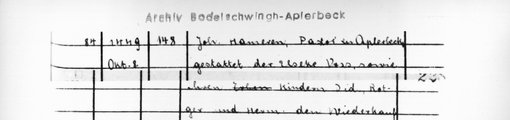 Archiv Bodelschwingh-Aplerbeck
84 1449 148 Joh. Hameren, Pastor zu Aplerbeck
Okt. 2 gestattet der Elseke Voss, sowie
ihren Erben Kindern Did, Rot-
ger und Herm. den Wiederkauf